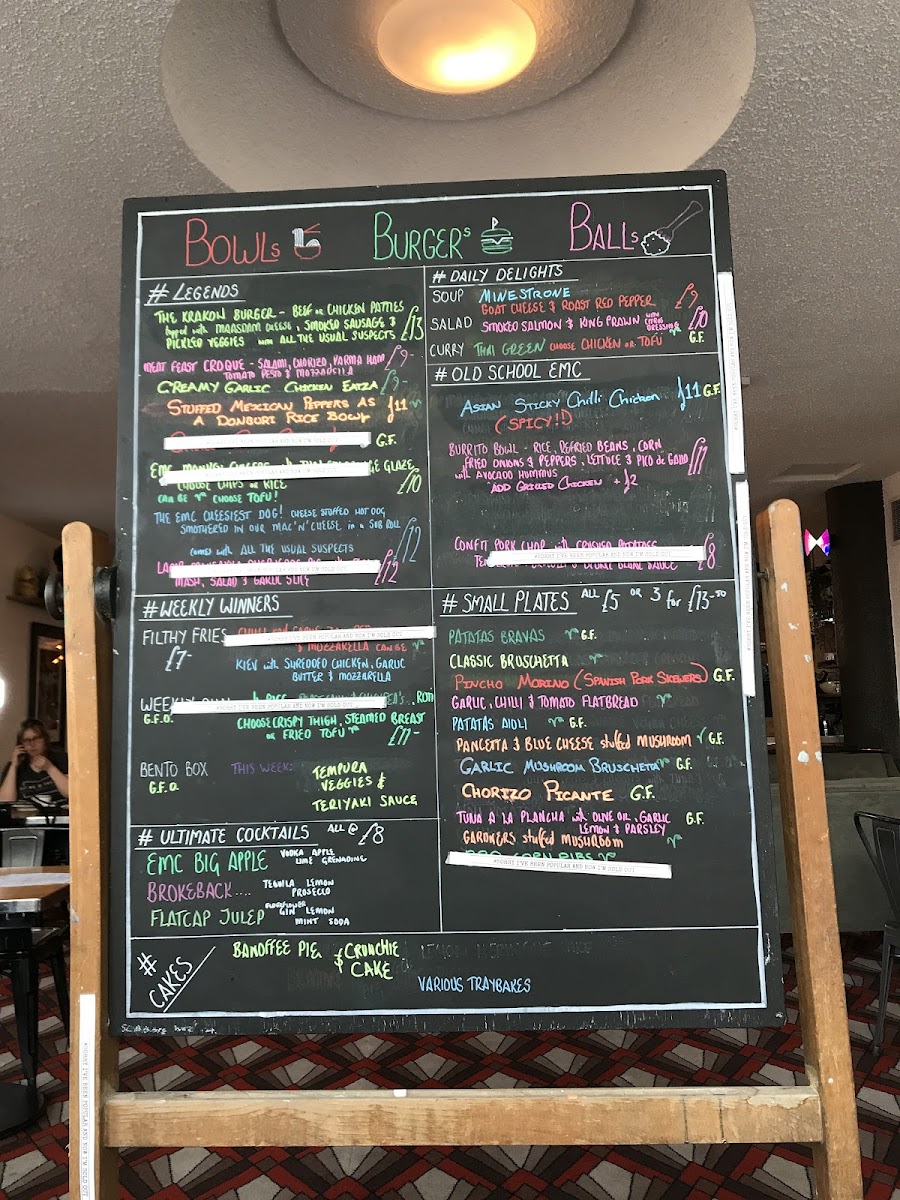 BOWLs BURGERs BALLs
# LEGENDS
THE KRAKOW BURGER - BEEF OR CHICKEN PATTIES
topped with MAASDAM CHEESE, SMOKED SAUSAGE &
PICKLED VEGGIES with ALL THE USUAL SUSPECTS £13
MEAT FEAST CROQUE - SALAMI, CHORIZO, PARMA HAM £9-
TOMATO PESTO & MOZZARELLA
CREAMY GARLIC CHICKEN EATZA £9-
STUFFED MEXICAN PEPPERS AS £11 v
A DONBURI RICE BOWL
G.F.
EMC MONKEY FINGERS GLAZE
CHOOSE CHIPS or RICE £10
CAN BE v CHOOSE TOFU!
THE EMC CHEESIEST DOG! CHEESE STUFFED HOT DOG,
SMOTHERED IN OUR MAC'N'CHEESE in a SUB ROLL
£12
COMES with ALL THE USUAL SUSPECTS
£12
MASH, SALAD & GARLIC SLICE
# WEEKLY WINNERS
FILTHY FRIES
#SORRY I'VE BEEN POPULAR AND NOW I'M SOLD OUT
£7-
& MOZZARELLA CAN BE v
KIEV with SHREDDED CHICKEN, GARLIC
BUTTER & MOZZARELLA
WEEKLY
#SORRY I'VE BEEN POPULAR AND NOW I'M SOLD OUT
G.F.O.
CHOOSE CRISPY THIGH, STEAMED BREAST
or FRIED TOFU v £11-
BENTO BOX THIS WEEK: TEMPURA
G.F.O. VEGGIES &
TERIYAKI SAUCE
# ULTIMATE COCKTAILS ALL @ £8
EMC BIG APPLE VODKA APPLE
LIME GRENADINE
BROKEBACK.... TEQUILA LEMON
PROSECCO
FLATCAP JULEP ELDERFLOWER
GIN LEMON
MINT SODA
# DAILY DELIGHTS
SOUP MINESTRONE
GOAT CHEESE & ROAST RED PEPPER £9
SALAD SMOKED SALMON & KING PRAWN with CITRUS DRESSING £10
CURRY THAI GREEN CHOOSE CHICKEN OR TOFU v G.F.
# OLD SCHOOL EMC
ASIAN STICKY CHILLI CHICKEN £11 G.F.
(SPICY!!)
BURRITO BOWL - RICE, REFRIED BEANS, CORN £11
FRIED ONIONS & PEPPERS, LETTUCE & PICO de GALLO
with AVOCADO HUMMUS
ADD GRILLED CHICKEN + £2
CONFIT PORK CHOP with CRUSHED POTATOES
#SORRY I'VE BEEN POPULAR AND NOW I'M SOLD OUT
£8
# SMALL PLATES ALL £5 OR 3 for £13-50
PATATAS BRAVAS v G.F.
CLASSIC BRUSCHETTA v
PINCHO MORINO (SPANISH PORK SKEWERS) G.F.
GARLIC, CHILLI & TOMATO FLATBREAD v
PATATAS AIOLI v G.F.
PANCETTA & BLUE CHEESE stuffed MUSHROOM v G.F.
GARLIC MUSHROOM BRUSCHETTA v G.F.
CHORIZO PICANTE G.F.
TUNA A LA PLANCHA with OLIVE OIL, GARLIC G.F.
LEMON & PARSLEY
GARDNERS stuffed MUSHROOM v
CORN RIBS v
#SORRY I'VE BEEN POPULAR AND NOW I'M SOLD OUT
# CAKES
BANOFFEE PIE & CRUNCHIE
& CAKE
VARIOUS TRAYBAKES
#SORRY I'VE BEEN POPULAR AND NOW I'M SOLD OUT